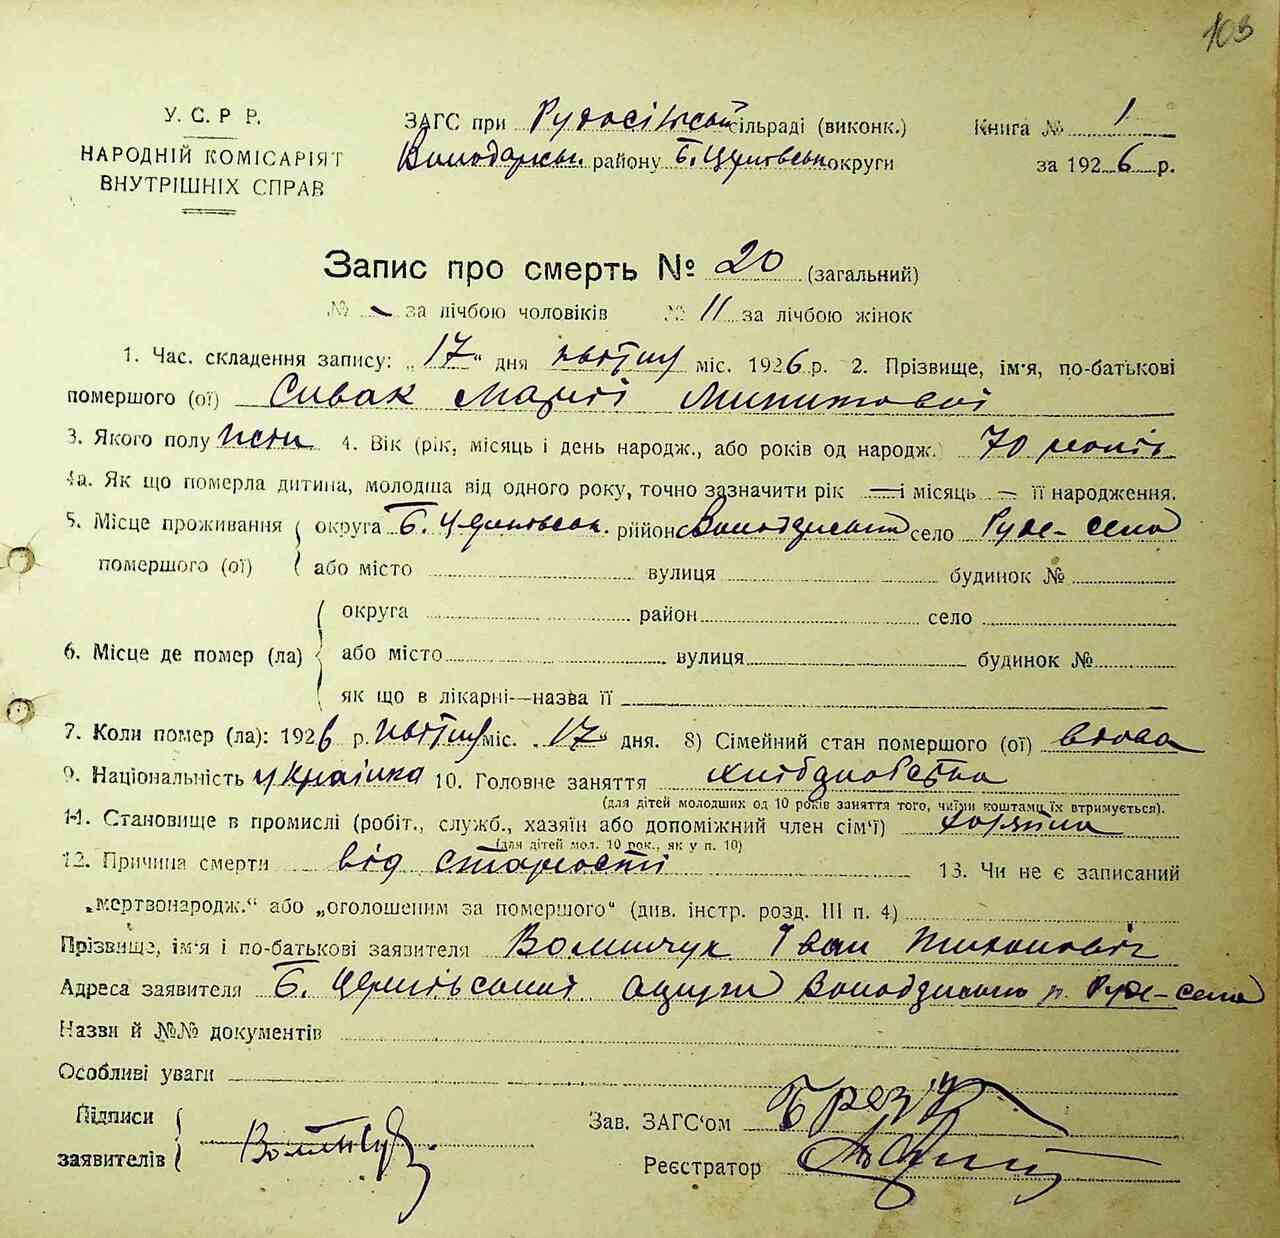 103
У. С. Р Р.
НАРОДНІЙ КОМІСАРІЯТ
ВНУТРІШНІХ СПРАВ
ЗАГС при Рудосільській сільраді (виконк.)
Володарськ. району Б. Церківськ округи
Книга № 1
за 1926 р.
Запис про смерть № 20 (загальний)
№ за лічбою чоловіків № 11 за лічбою жінок
1. Час. складення запису: „17" дня квітня міс. 1926 р. 2. Прізвище, ім'я, по-батькові
помершого (ої) Сивак Марії
3. Якого полу жін. 4. Вік (рік, місяць і день народж., або років од народж.) 70 років
4а. Як що померла дитина, молодша від одного року, точно зазначити рік — і місяць — її народження.
5. Місце проживання помершого (ої) округа Б. Церківськ. район Володарський село Руде-село
або місто вулиця будинок №
6. Місце де помер (ла) округа район село
або місто вулиця будинок №
як що в лікарні—назва її
7. Коли помер (ла): 1926 р. квітня міс. „17" дня. 8) Сімейний стан помершого (ої) вдова
9. Національність українка 10. Головне заняття хліборобство
(для дітей молодших од 10 років заняття того, чиїми коштами їх втримується).
11. Становище в промислі (робіт., служб., хазяїн або допоміжний член сім'ї) хазяїна
(для дітей мол. 10 рок., як у п. 10)
12. Причина смерти від старости 13. Чи не є записаний
„мертвонародж." або „оголошеним за помершого" (див. інстр. розд. III п. 4)
Прізвище, ім'я і по-батькові заявителя Волинчук Іван Тихонович
Адреса заявителя Б. Церківської округи Володарського р. Руде-село
Назви й №№ документів
Особливі уваги
Підписи заявителів Волинчук
Зав. ЗАГС'ом
Реєстратор